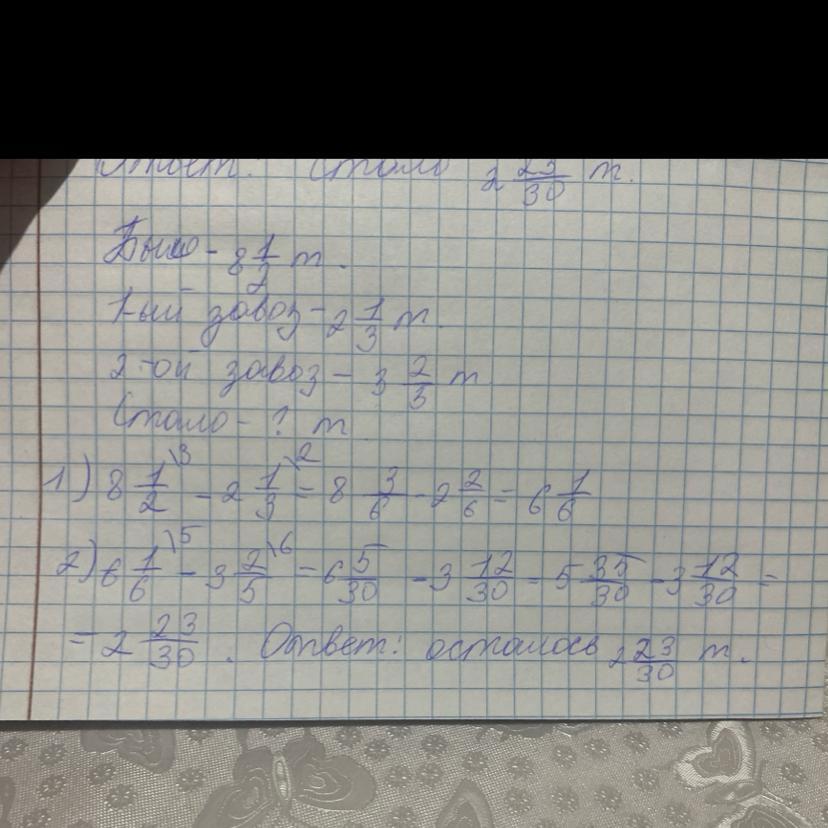 Ответ: Стало 2 23/30 т.
Было - 8 1/2 т.
1-ый завоз - 2 1/3 т.
2-ой завоз - 3 2/3 т
Стало - ? т
1) 8 1/2\3 - 2 1/3\2 = 8 3/6 - 2 2/6 = 6 1/6
2) 6 1/6\5 - 3 2/5\6 = 6 5/30 - 3 12/30 = 5 35/30 - 3 12/30 =
= 2 23/30. Ответ: осталось 2 23/30 т.